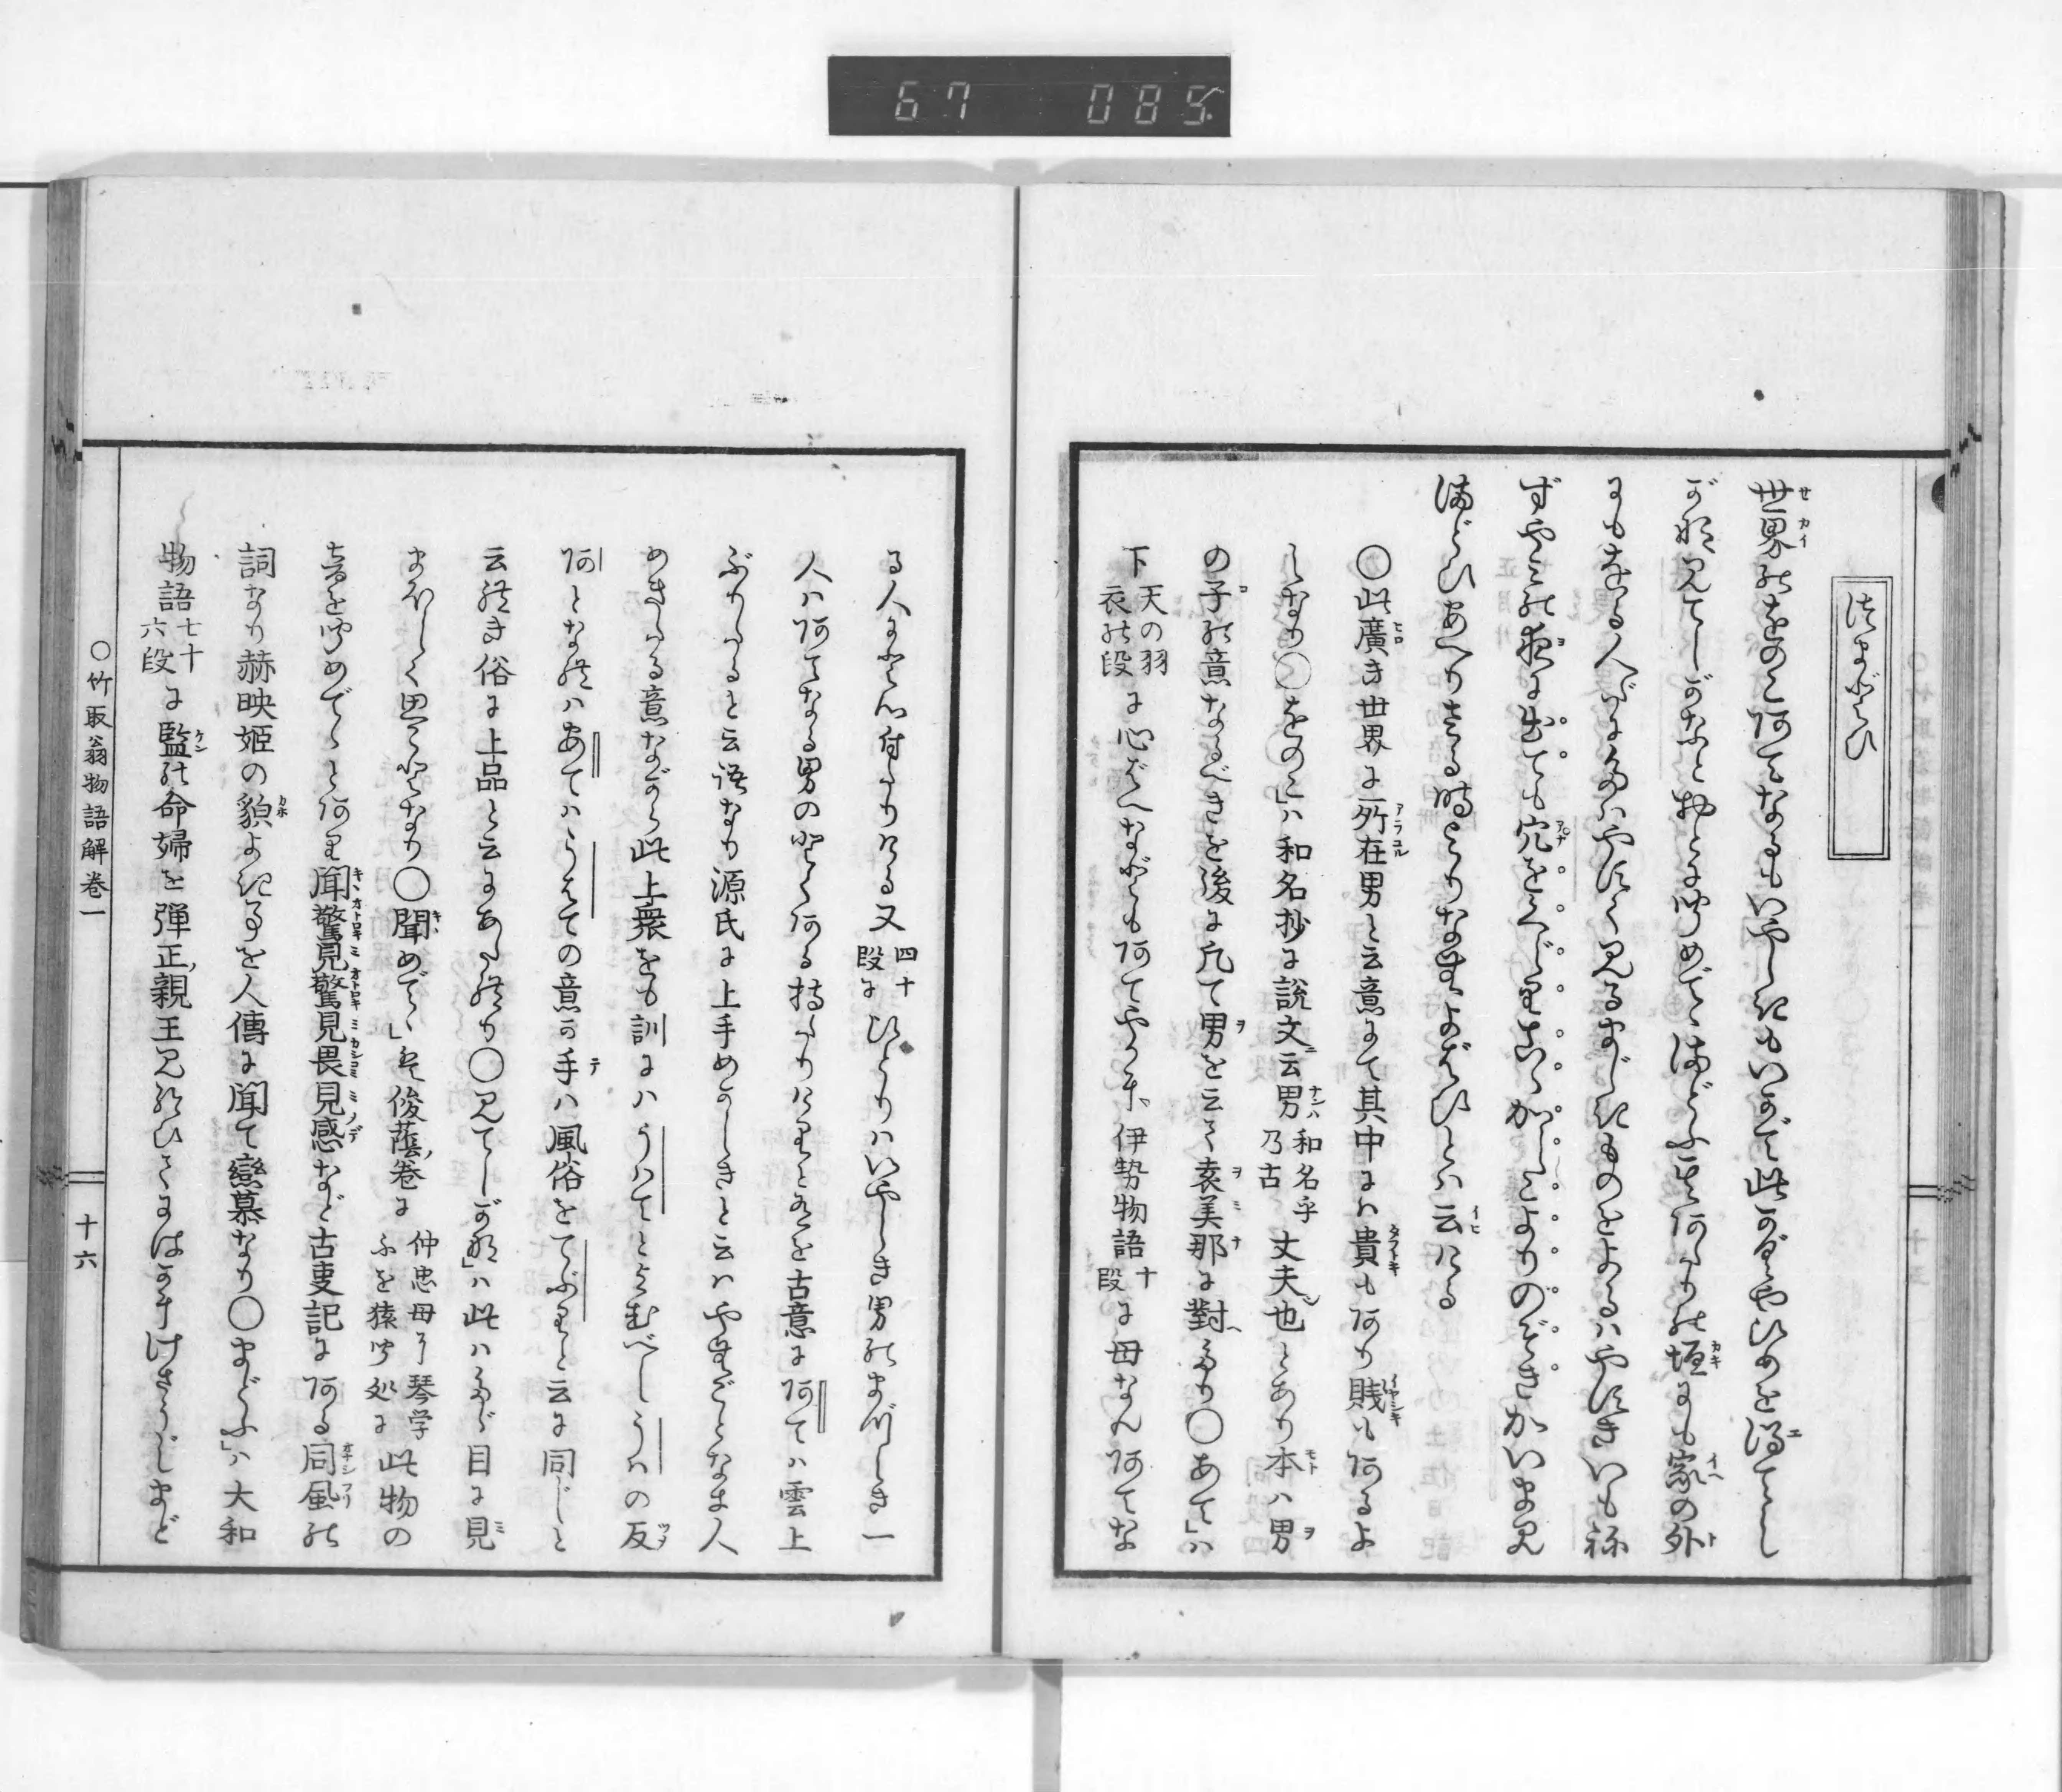 67 085
つまどひ
世界のをのこあてなるもいやしきもいかで此かぐやひめを得てし
がな見てしがなとおとにきゝめでゝまどふ其あたりの垣にも家の外
にもをる人だにたはやすく見るまじきものをよるはやすきいも祢
ずやみの夜に出ても穴をくじりこゝかしこよりのぞきかいま見
まどひあへりさる時よりなむよばひとは云ける
○此廣き世界に所在男と云意にて其中には貴もあり賤もあるよ
しなり○をのこ」は和名抄に説文云男和名乎乃古丈夫也とあり本は男
の子の意なるべきを後に凡て男を云て袁美那に對へたり○あて」は
下天の羽衣の段に心ばへなどもあてやか」伊勢物語十段に母なんあてな
る人に心付たりける又四十段にひとりはいやしき男のまづしき一
人はあてなる男のとくある持たりけりと有を古意にあては雲上
ぶりたると云語なり源氏に上手めかしきと云はやむごとなき人
めきたる意ながら此上衆をも訓にはうはてとよむべしうはの反
あとなればあてはうはての意か手は風俗をてぶりと云に同じと
云れき俗に上品と云にあたれり○見てしがな」は此はたゞ目に見
まほしく思ことなり○聞めでゝ」は俊蔭巻に仲忠母子琴学ふを猿聞処に此物の
音を聞めでゝとあり聞驚見驚見畏見感など古吏記にある同風の
詞なり赫映姫の貌よき事を人傳に聞て戀慕なり○まどふ」は大和
物語七十六段に監の命婦を彈正親王見給ひてにはかにけさうじまど
○竹取翁物語解卷一
十六